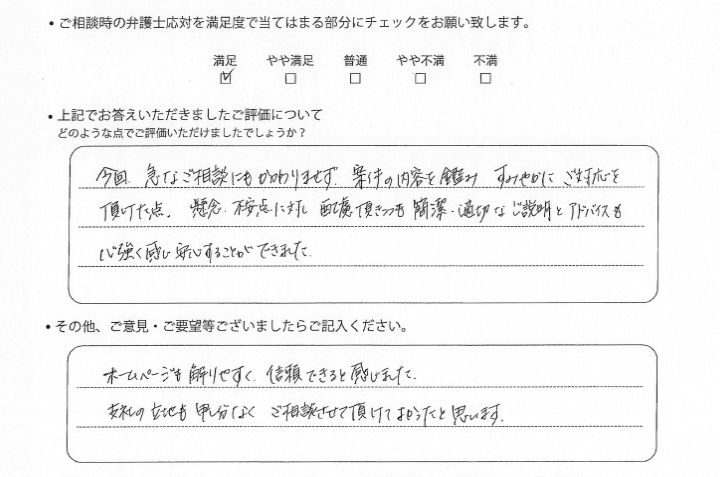 • ご相談時の弁護士応対を満足度で当てはまる部分にチェックをお願い致します。
満足 やや満足 普通 やや不満 不満
☑ □ □ □ □
• 上記でお答えいただきましたご評価について
どのような点でご評価いただけましたでしょうか？
今回、急なご相談にもかかわりませず、案件の内容を鑑み すみやかに ご対応を
頂けた点。懸念、不安点に対し 配慮頂きつつも 簡潔・適切な ご説明と アドバイスも
心強く感じ 安心することができました。
• その他、ご意見・ご要望等ございましたらご記入ください。
ホームページも 解りやすく、信頼できると 感じました。
支社の 立地も 申し分なく ご相談させて頂けて よかったと思います。